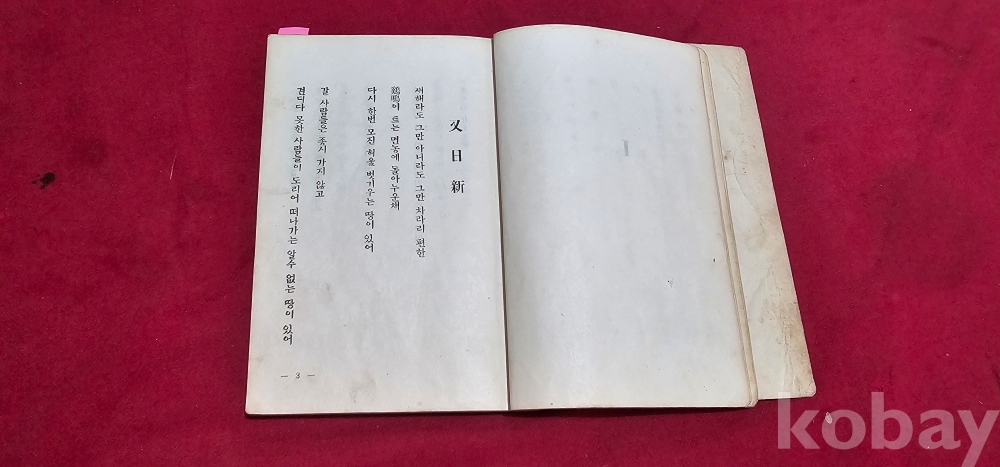 又日新
새해라도 그만 아니라도 그만 차라리 편한
鷄鳴이 트는 먼동에 돌아누운채
다시 한번 모진 허울 벗기우는 땅이 있어
갈 사람들은 좃시 가지 않고
견디다 못한 사람들이 도리어 떠나가는 알수 없는 땅이 있어
— 3 —
kobay